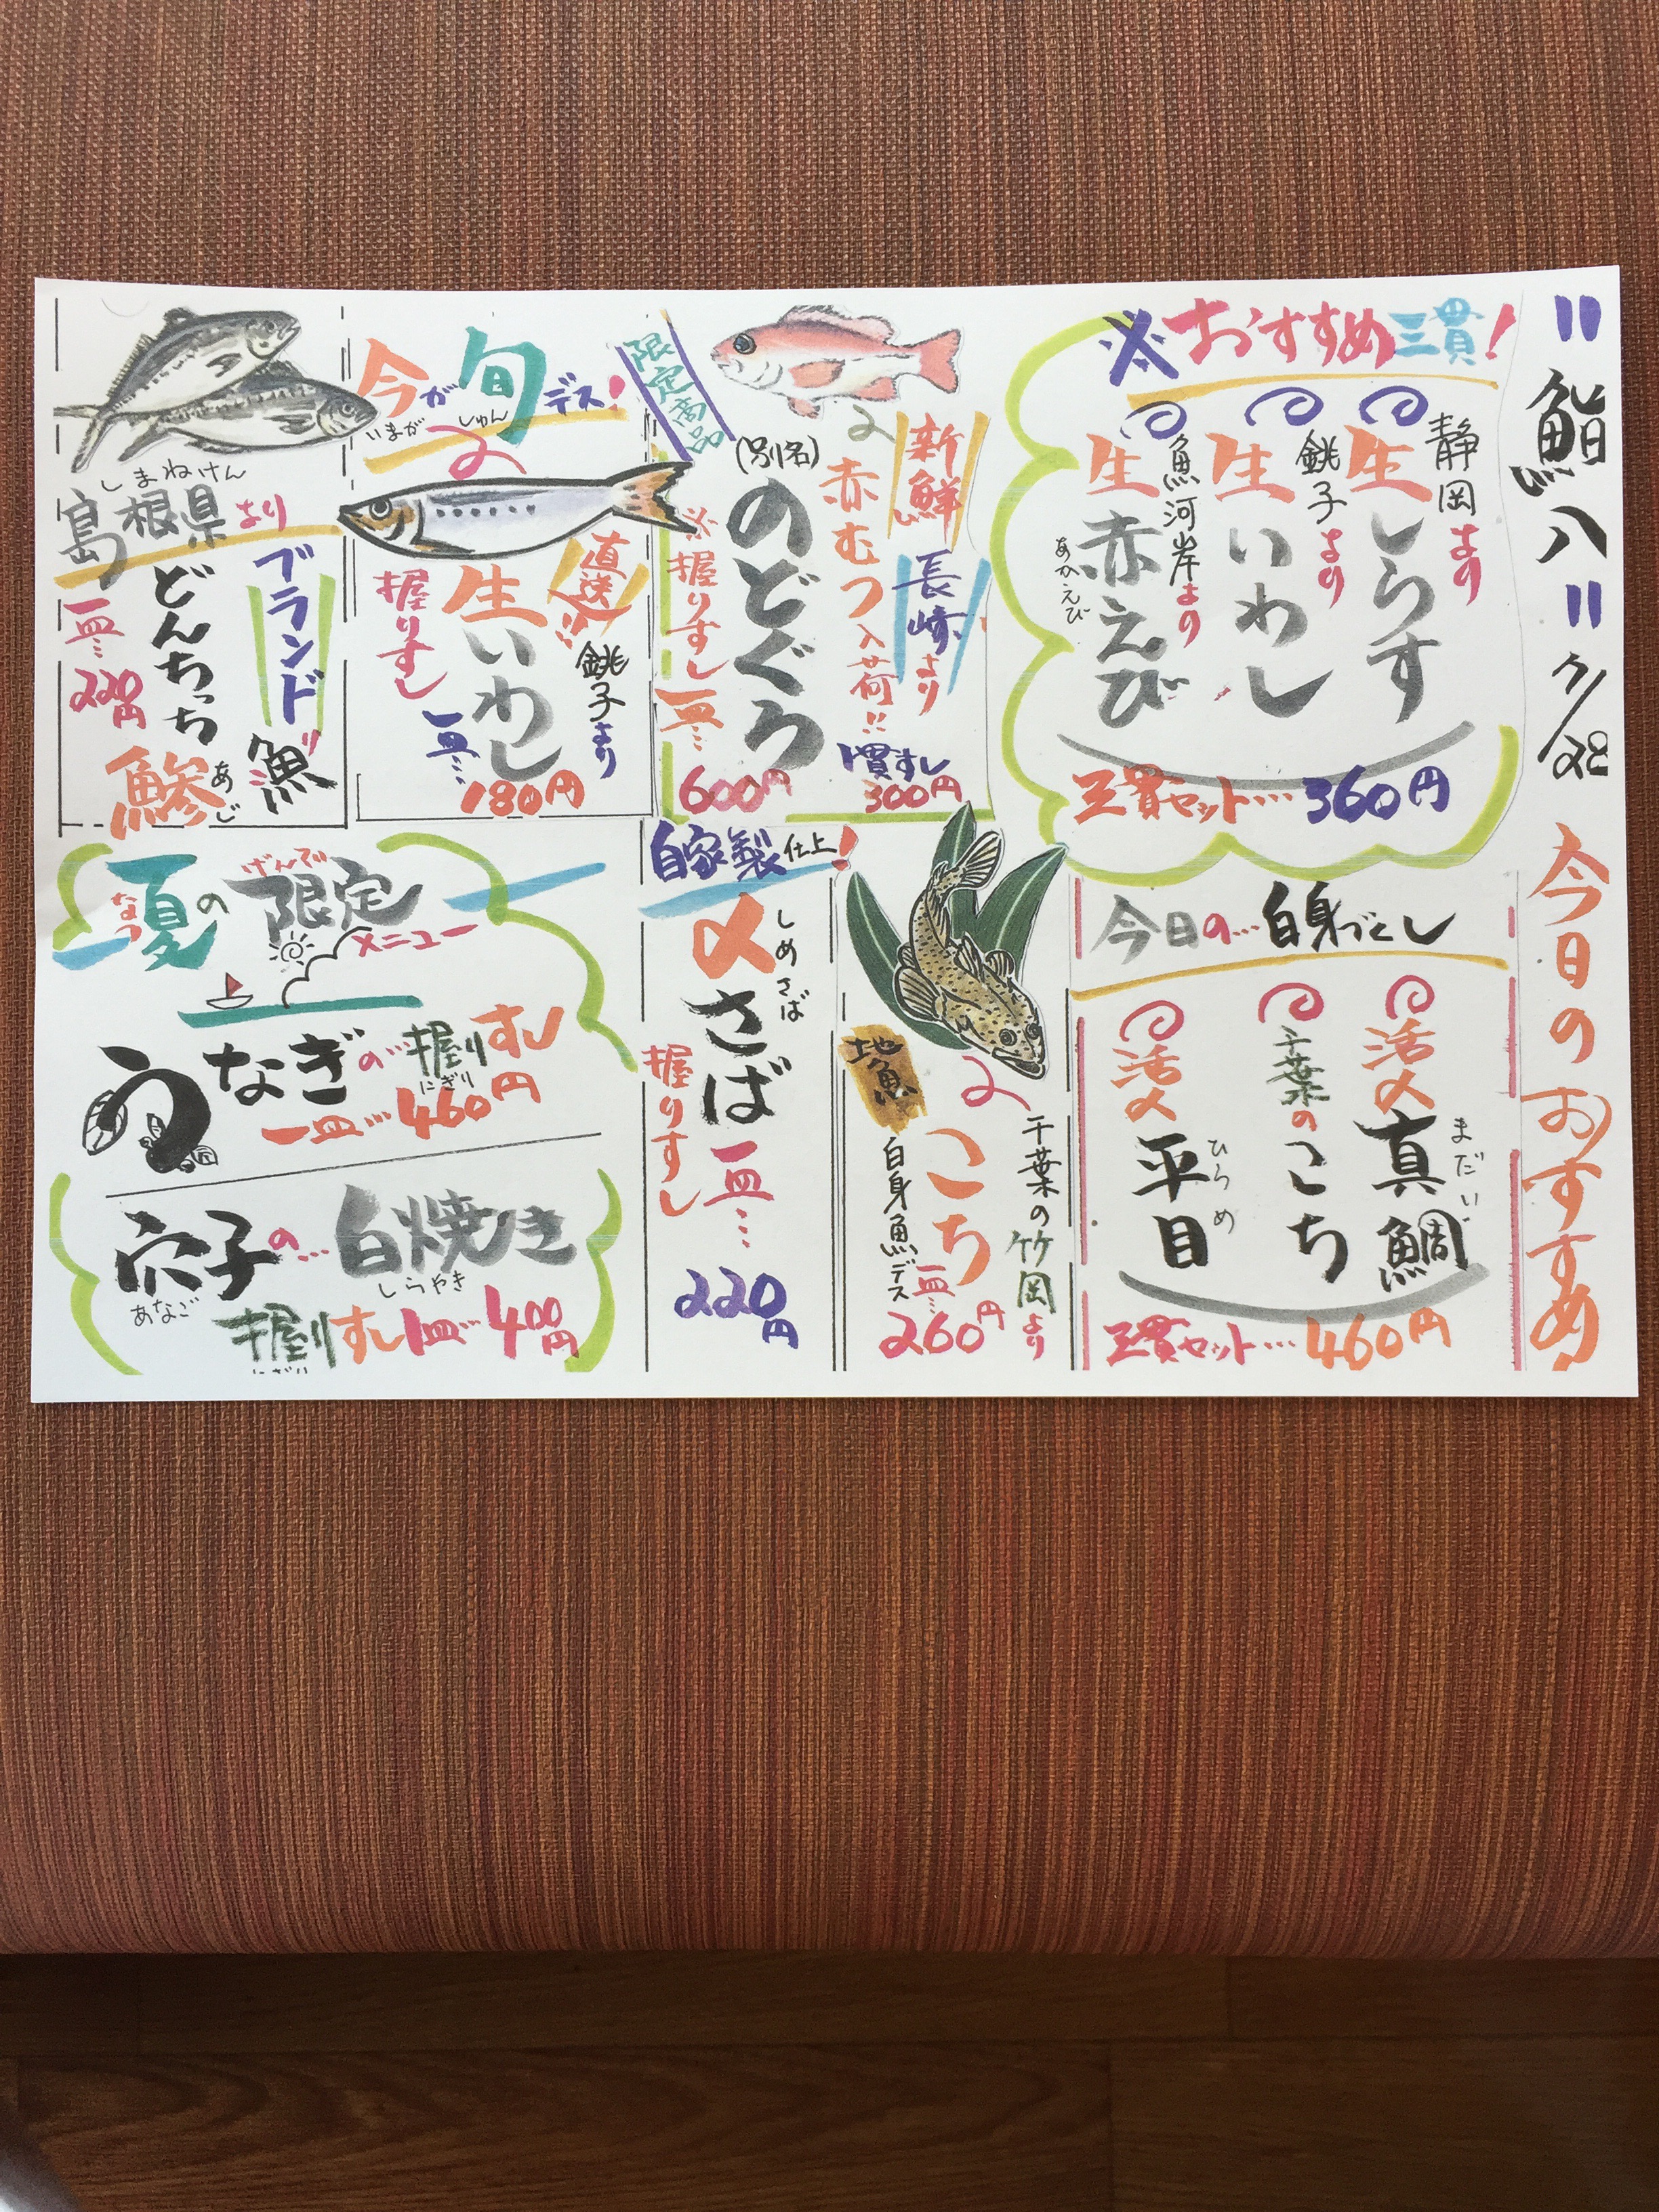 "鮨八" 7/28
今日のおすすめ
※おすすめ三貫!
静岡より
生しらす
銚子より
生いわし
魚河岸より
生赤えび
あかえび
三貫セット…360円
限定商品
新鮮
長崎より
赤むつ入荷!!
(別名)
のどぐろ
※握りすし
一皿…
600円
一貫すし
300円
今が旬デス!
いまが しゅん
直送!!
銚子より
生いわし
握りすし
一皿…
180円
しまねけん
島根県より
ブランド魚"
どんちっち
鯵
あじ
一皿…
220円
今日の…白身づくし
活〆
真鯛
まだい
千葉の
こち
活〆
平目
ひらめ
三貫セット…460円
地魚
千葉の竹岡より
こち
白身魚デス
一皿…
260円
自家製仕上!
しめさば
〆さば
握りすし
一皿…
220円
夏の限定メニュー
なつ げんてい
うなぎの…握りすし
にぎり
一皿…460円
穴子の…白焼き
あなご しらやき
握りすし1皿…400円
にぎり